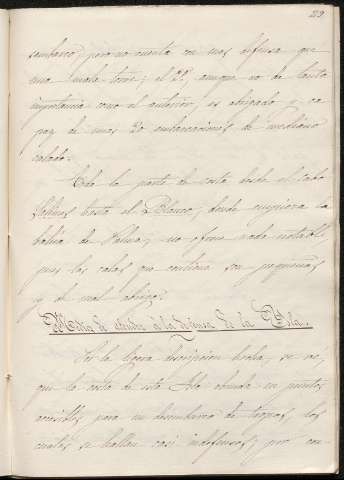 29
sembarco, pero no cuenta con mas defensa que
una mala torre; el 2º, aunque no de tanta
importancia como el anterior, es abrigado y ca
paz de unas 20 embarcaciones de mediano
calado.
Toda la parte de costa desde el cabo
Salinas hasta el Blanco, donde empieza la
bahia de Palma, no ofrece nada notable
pues las calas que contiene son pequeñas
y de mal abrigo.
de la Isla.
Por la ligera descripcion hecha, se vé,
que la costa de esta Isla abunda en puntos
accesibles para un desembarco de tropas, los
cuales se hallan casi indefensos; por con-